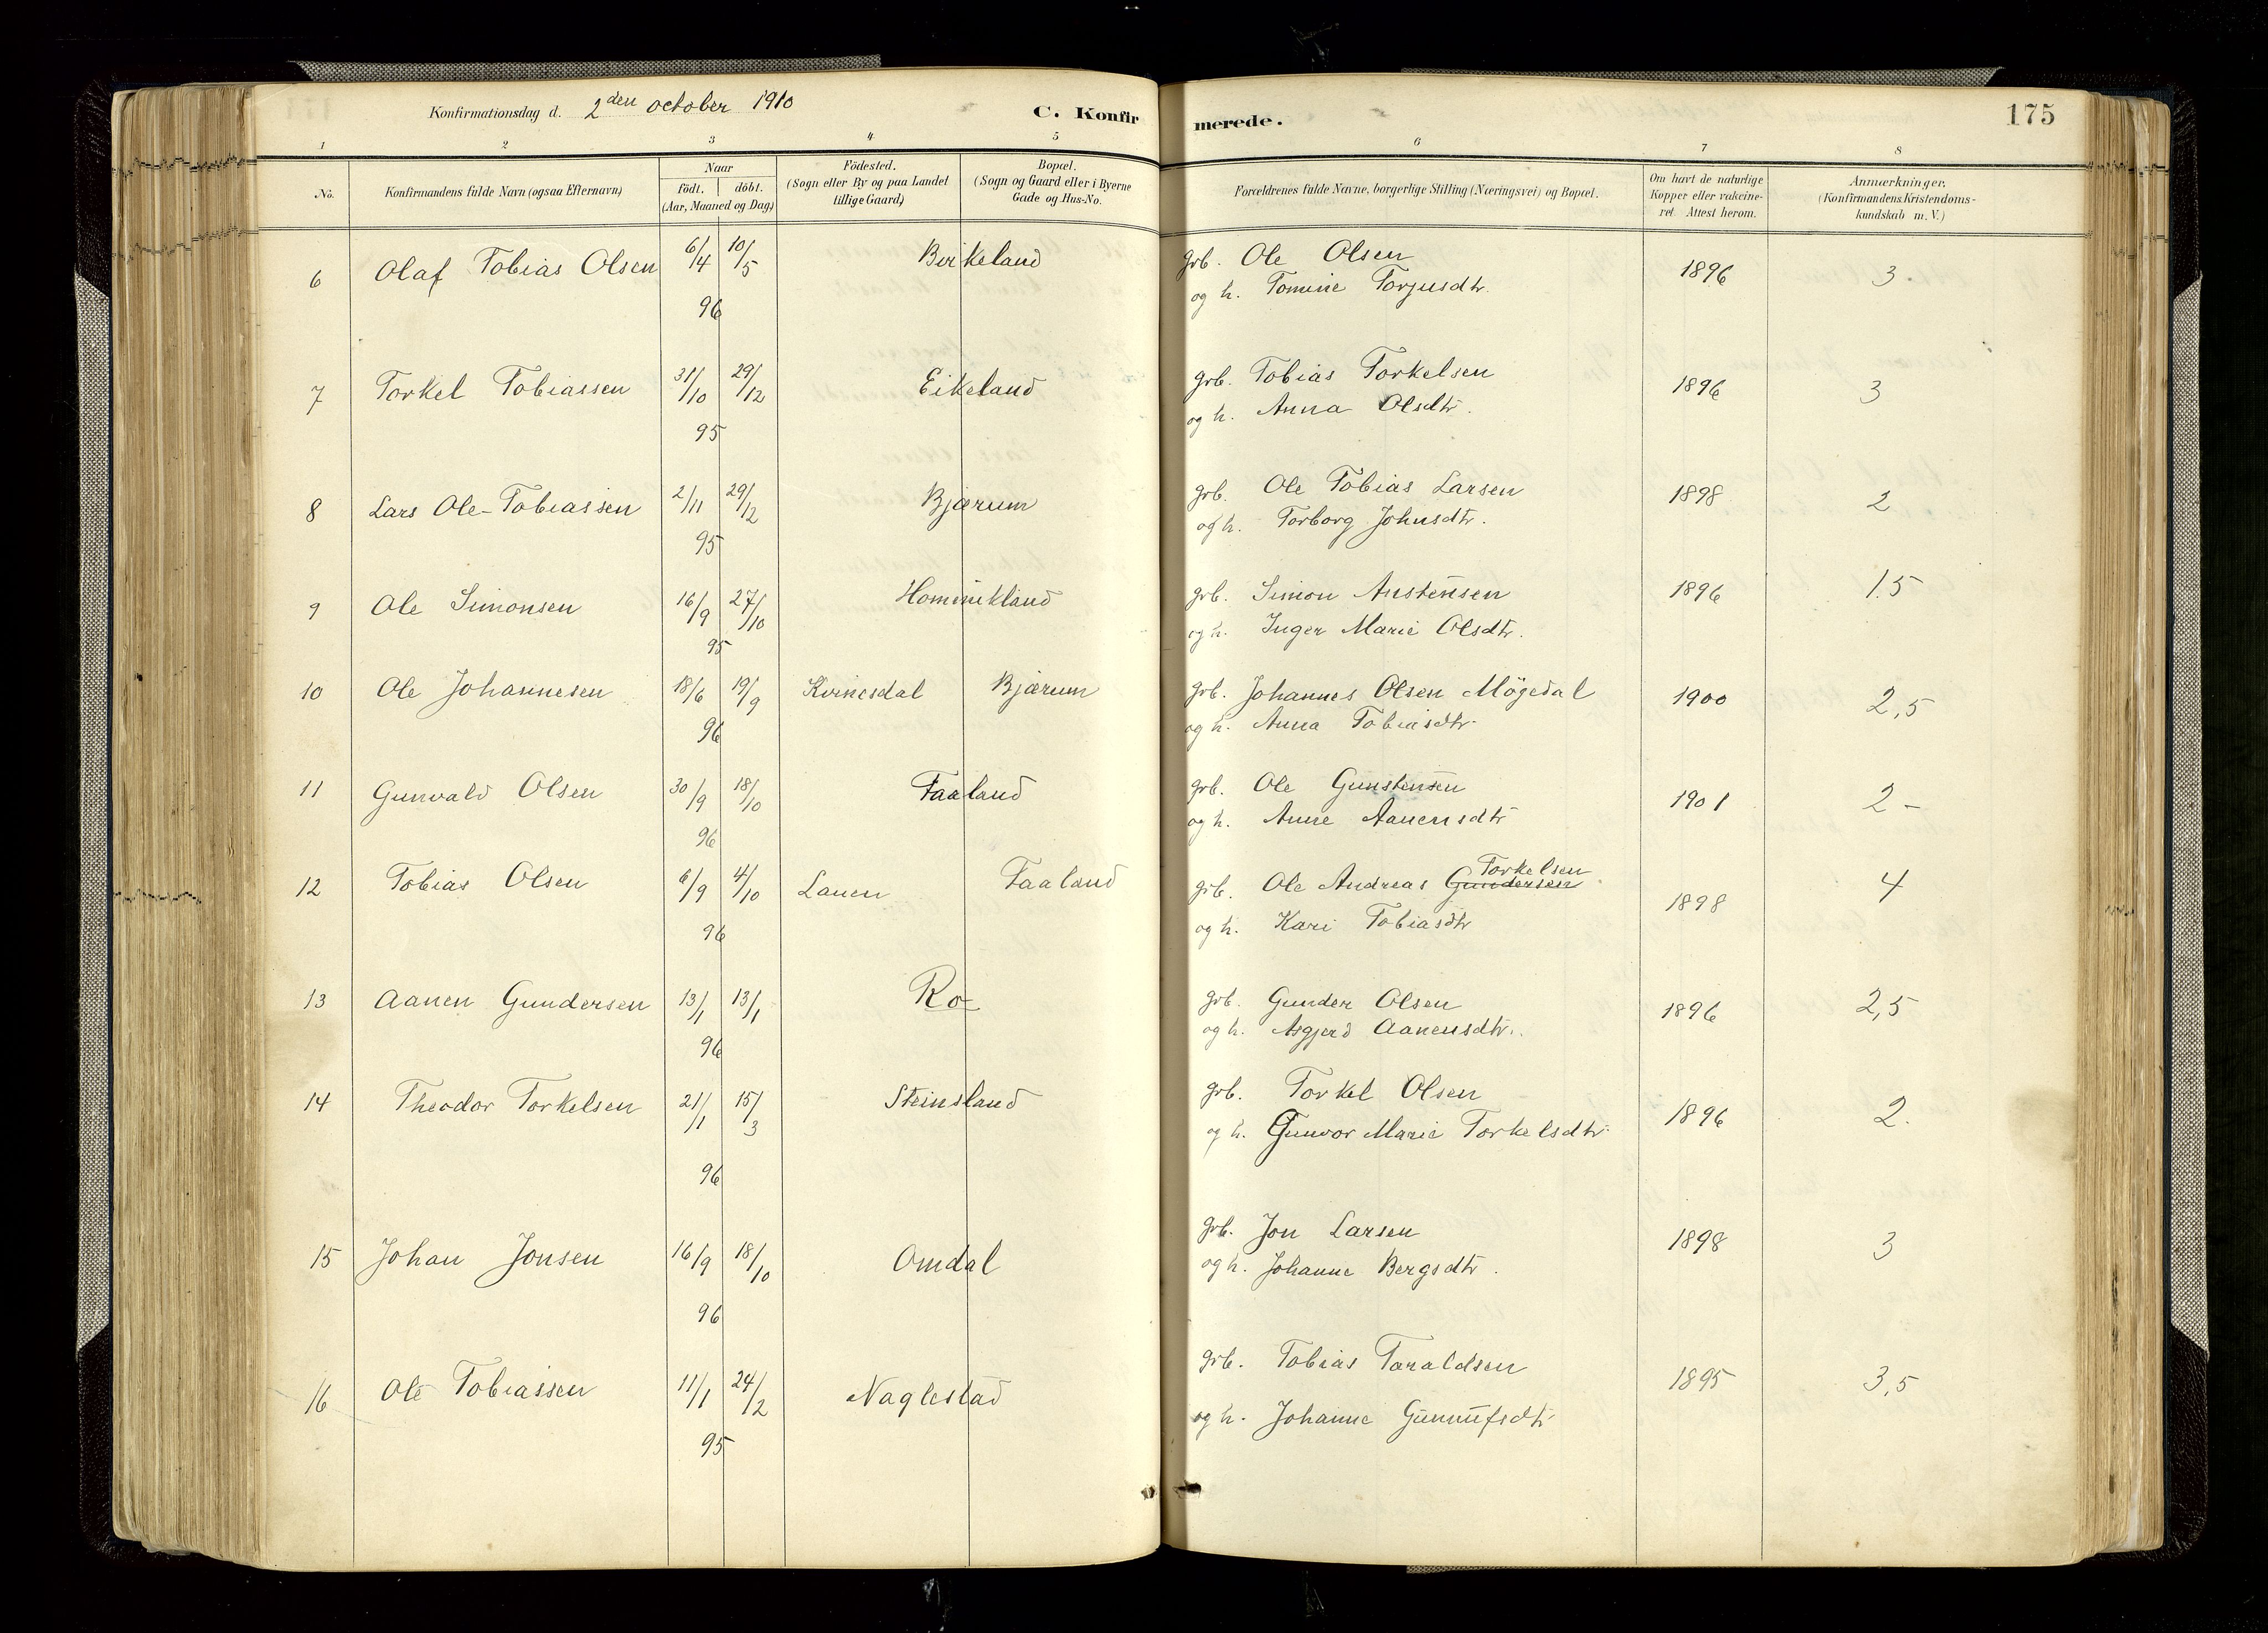 Konfirmationsdag d. 2den october 1910
C. Konfirmerede.
175
1 2 3 4 5 6 7 8
No. Konfirmandens fulde Navn (ogsaa Efternavn) Naar födt. döbt. (Aar, Maaned og Dag) Födested. (Sogn eller By og paa Landet tillige Gaard) Bopæl. (Sogn og Gaard eller i Byerne Gade og Hus-No. Forældrenes fulde Navne, borgerlige Stilling (Næringsvei) og Bopæl. Om havt de naturlige Kopper eller vakcineret. Attest herom. Anmærkninger. (Konfirmandens Kristendomskundskab m. V.)
6 Olaf Tobias Olsen 6/4 10/5 Birkeland grb. Ole Olsen 1896 3
96 og h. Tomine Torjusdtr.
7 Torkel Tobiassen 31/10 29/12 Eikeland grb. Tobias Torkelsen 1896 3
95 og h. Anna Olsdtr.
8 Lars Ole-Tobiassen 2/11 29/12 Bjærum grb. Ole Tobias Larsen 1898 2
95 og h. Torborg Johnsdtr.
9 Ole Simonsen 16/9 27/10 Hommekland grb. Simon Austensen 1896 1.5
95 og h. Inger Marie Olsdtr.
10 Ole Johannesen 18/6 19/9 Kvinesdal Bjærum grb. Johannes Olsen Mögedal 1900 2,5
96 og h. Anna Tobiasdtr.
11 Gunvald Olsen 30/9 18/10 Faaland grb. Ole Gunstensen 1901 2-
96 og h. Anne Aanensdtr
12 Tobias Olsen 6/9 4/10 Lauen Faaland grb. Ole Andreas Gundersen Torkelsen 1898 4
96 og h. Kari Tobiasdtr
13 Aanen Gundersen 13/1 13/1 Ro grb. Gunder Olsen 1896 2,5
96 og h. Asgjerd Aanensdtr.
14 Theodor Torkelsen 21/1 15/3 Steinsland grb. Torkel Olsen 1896 2.
96 og h. Gunvor Marie Torkelsdtr.
15 Johan Jonsen 16/9 18/10 Omdal grb. Jon Larsen 1898 3
96 og h. Johanne Bergsdtr.
16 Ole Tobiassen 11/1 24/2 Naglestad grb. Tobias Taraldsen 1895 3,5
95 og h. Johanne Gunnufsdtr